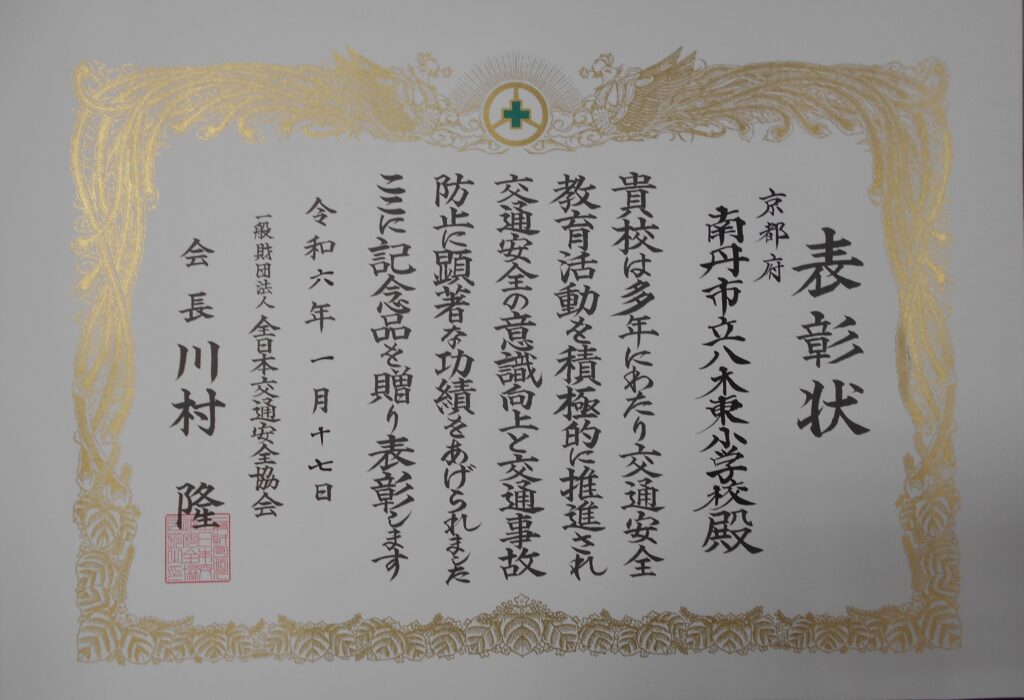 表彰状
京都府
南丹市立八木東小学校殿
貴校は多年にわたり交通安全
教育活動を積極的に推進され
交通安全の意識向上と交通事故
防止に顕著な功績をあげられました
ここに記念品を贈り表彰します
令和六年一月十七日
一般財団法人 全日本交通安全協会
会長 川村 隆